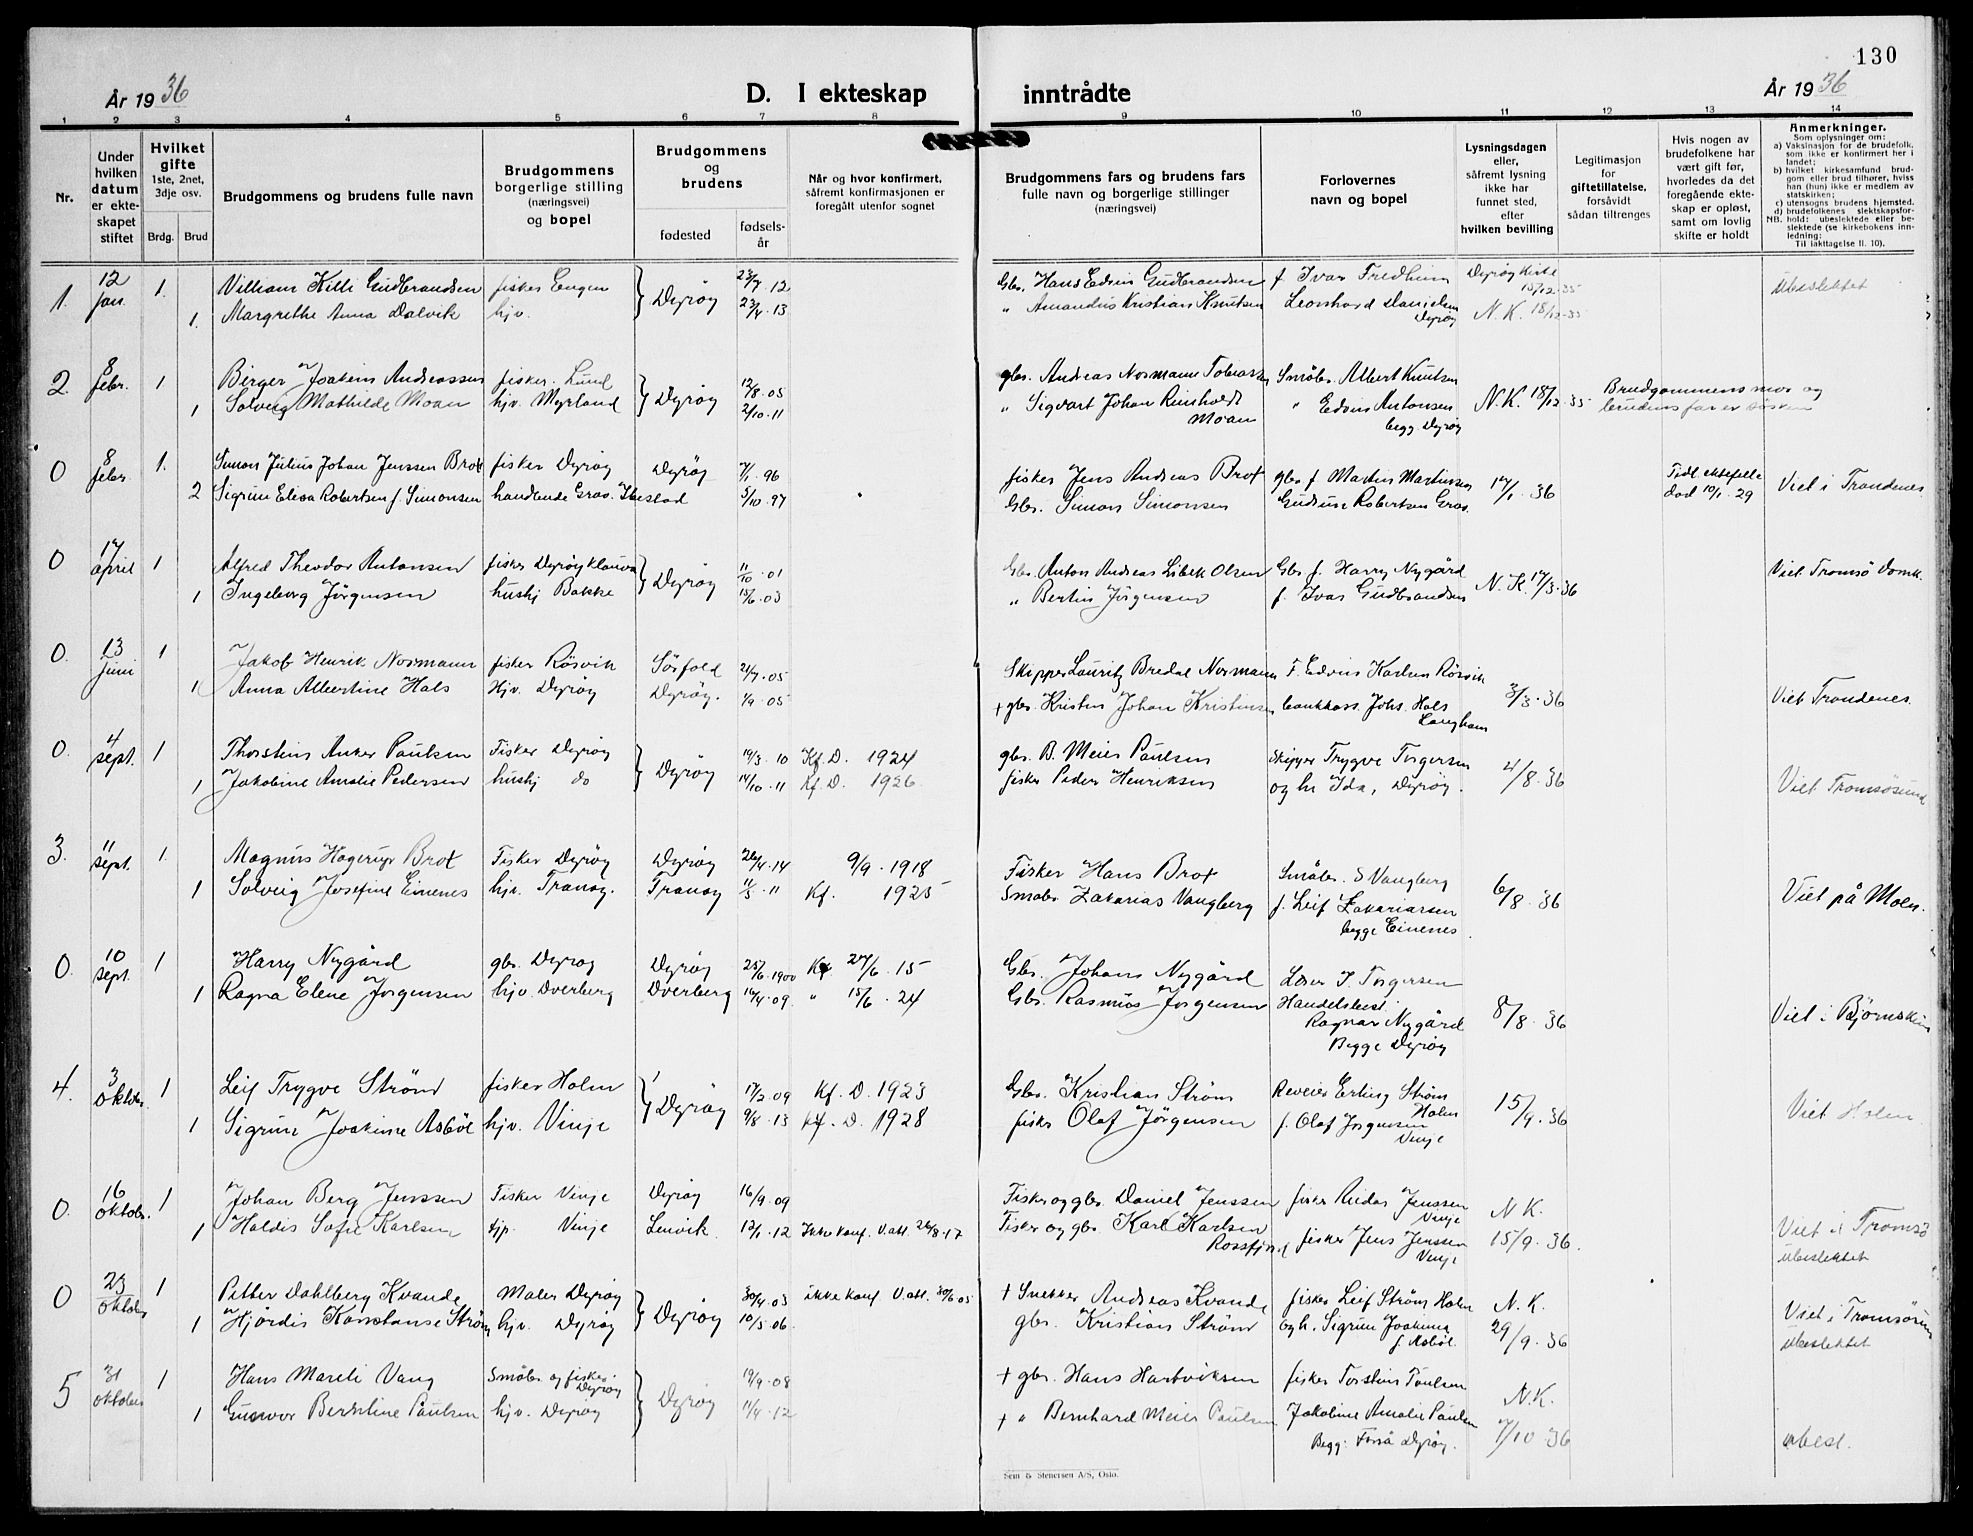 130
År 1936
D. I ekteskap
inntrådte
År 1936
1 2 3 4 5 6 7 8
9 10 11 12 13 14
Nr.
Under hvilken datum er ekteskapet stiftet
Hvilket gifte 1ste, 2net, 3dje osv.
Brdg. Brud
Brudgommens og brudens fulle navn
Brudgommens borgerlige stilling (næringsvei) og bopel
Brudgommens og brudens
fødested
fødselsår
Når og hvor konfirmert, såfremt konfirmasjonen er foregått utenfor sognet
Brudgommens fars og brudens fars fulle navn og borgerlige stillinger (næringsvei)
Forlovernes navn og bopel
Lysningsdagen eller, såfremt lysning ikke har funnet sted, efter hvilken bevilling
Legitimasjon for giftetillatelse, forsåvidt sådan tiltrenges
Hvis nogen av brudefolkene har vært gift før, hvorledes da det foregående ekteskap er opløst, samt om lovlig skifte er holdt
Anmerkninger.
Som oplysninger om:
a) Vaksinasjon for de brudefolk, som ikke er konfirmert her i landet;
b) hvilket kirkesamfund brudgom eller brud tilhører, hviss han (hun) ikke er medlem av statskirken;
c) utensogns brudens hjemsted.
d) brudefolkenes slektskapsforhold: ubeslektede eller beslektede (se kirkebokens innledning:
NB.
Til iakttagelse II. 10).
1. 12 jan. 1. William Killi Gudbrandsen fisker Dyrøy 23/7 12 Gbr. Hans Edvin Gudbrandsen f. Ivar Fredheim Dyrøy kirke 15/12-35 Ubeslektet
1. Margrethe Anna Dalvik hjv. 23/4 13 " Amandus Kristian Knutsen Leonhard Danielsen Dyrøy N.K. 18/12-35
2. 8 febr. 1 Birger Joakim Andreassen fisker. Lund Dyrøy 12/8 05 gbr. Andreas Normann Tobiassen Småbr. Albert Knutsen N.K. 18/12-35 Brudgommens mor og
1 Solveig Mathilde Moan hjv. Myrland 2/10 11 " Sigvart Johan Reinholdt Moan " Edvin Antonsen begg. Dyrøy brudens far er søsken
0 8 febr 1. Simon Julius Johan Jenssen Brox fisker Dyrøy Dyrøy 7/1 96 fisker Jens Andreas Brox gbr. f. Martin Martinsen 17/1 36 Tidl ektefelle Viet i Trondenes
2 Sigrun Elisa Robertsen f. Simonsen handlende Grov. Ibestad 5/10 97 Gbr. Simon Simonsen Gudrun Robertsen Grov. død 10/1 29
0 17 april 1 Alfred Theodor Antonsen fisker Dyrøy Dyrøy 11/10 01 Gbr. Anton Andreas Libek Olsen Gbr f. Harry Nygård N.K. 17/3 36 Viet Tromsö Domk.
1 Ingeborg Jörgensen hushj Bakke 15/6 03 " Bertin Jörgensen f. Ivar Gudbrandsen
0. 13 juni 1 Jakob Henrik Normann fisker Rösvik Sörfold 21/7 05 Skipper Lauritz Bredal Normann F. Edvin Karlsen Rösvik 3/3 36 Viet Trondenes.
1 Anna Albertine Hals Hjv. Dyrøy Dyrøy. 1/9 05 + gbr. Kristen Johan Kristensen bankkass. Johs. Hals Langhamn
0. 4 sept. 1 Thorstein Anker Paulsen Fisker Dyrøy Dyrøy 19/3 10 Kf. D. 1924 gbr. B. Meier Paulsen Skipper Trygve Torgersen 4/8 36 Viet Tromsøsund
1 Jakobine Amalie Pedersen hushj do 14/10 11 Kf. D. 1926 fisker Peder Henriksen og hr Ida, Dyrøy.
3. 11 sept. 1 Magnus Hagerup Brox Fisker Dyrøy Dyrøy 26/4 14 9/9 1918 Fisker Hans Brox Småbr. S Vangberg 6/8 36 Viet på Moen.
1 Solveig Josefine Einenes hjv. Tranøy. Tranøy 11/5 11 Kf. 1925 Småbr. Zakarias Vangberg f. Leif Zakariassen begge Einenes
0. 10 sept. 1 Harry Nygård gbr. Dyrøy Dyrøy 25/6 1900 Kf 27/6 15 Gbr. Johans Nygård Lærer I. Torgersen 8/8 36 Viet i Bjørnskin
1 Ragna Elene Jørgensen hjv. Dverberg Dverberg 16/4 09. " 15/6 24 Gbr. Rasmus Jørgensen Handelsbest. Ragnar Nygård Begge Dyrøy
4. 3 oktober. 1 Leif Trygve Strønd fisker Holm Dyrøy 17/2 09 Kf. D. 1923 Gbr. Kristian Strøm Erling Strøm Holm 15/9 36 Viet Holm
1 Sigrun Joakime Asböl hjv. Vinje 9/8 13 kf. D. 1928 fisker Olaf Jörgensen f. Olaf Jørgensen Vinje
0. 16 oktober. 1 Johan Berg Jenssen Fisker Vinje Dyrøy 16/9 09 Fisker og gbr. Daniel Jenssen fisker Reidar Jenssen Vinje N.K. 15/9 36. Viet i Tromsö
1 Haldis Sofie Karlsen tjp. Vinje Lenvik. 12/1 12 Ikke konf. V.att. 24/8-17 Fisker og gbr. Karl Karlsen Rossfjord fisker Jens Jenssen Vinje ubeslektet
0 23 oktober 1 Petter Dahlberg Kvande Maler Dyrøy Dyrøy 30/4 03 ikke konf V.att. 30/6 05 + Snekker Andreas Kvande fisker Leif Strøm Holm N.K. 29/9 36 Viet i Tromsøsund
1 Hjördis Konstanse Strøm hjv. Dyrøy 10/5 06. gbr. Kristian Strøm og h. Sigrun Joakime f. Asböl ubeslektet
5 31 oktober 1 Hans Mareli Vang Småbr og fisker Dyrøy Dyrøy 19/9 08 + gbr. Hans Hartviksen fisker Torstein Paulsen N.K. 7/10 36 ubesl.
1 Gunvor Berntine Paulsen hjv. Dyrøy 11/4 12 + " Bernhard Meier Paulsen Jakobine Amalie Paulsen Begg: Forså Dyrøy.
Sem & Stenersen A/S, Oslo.